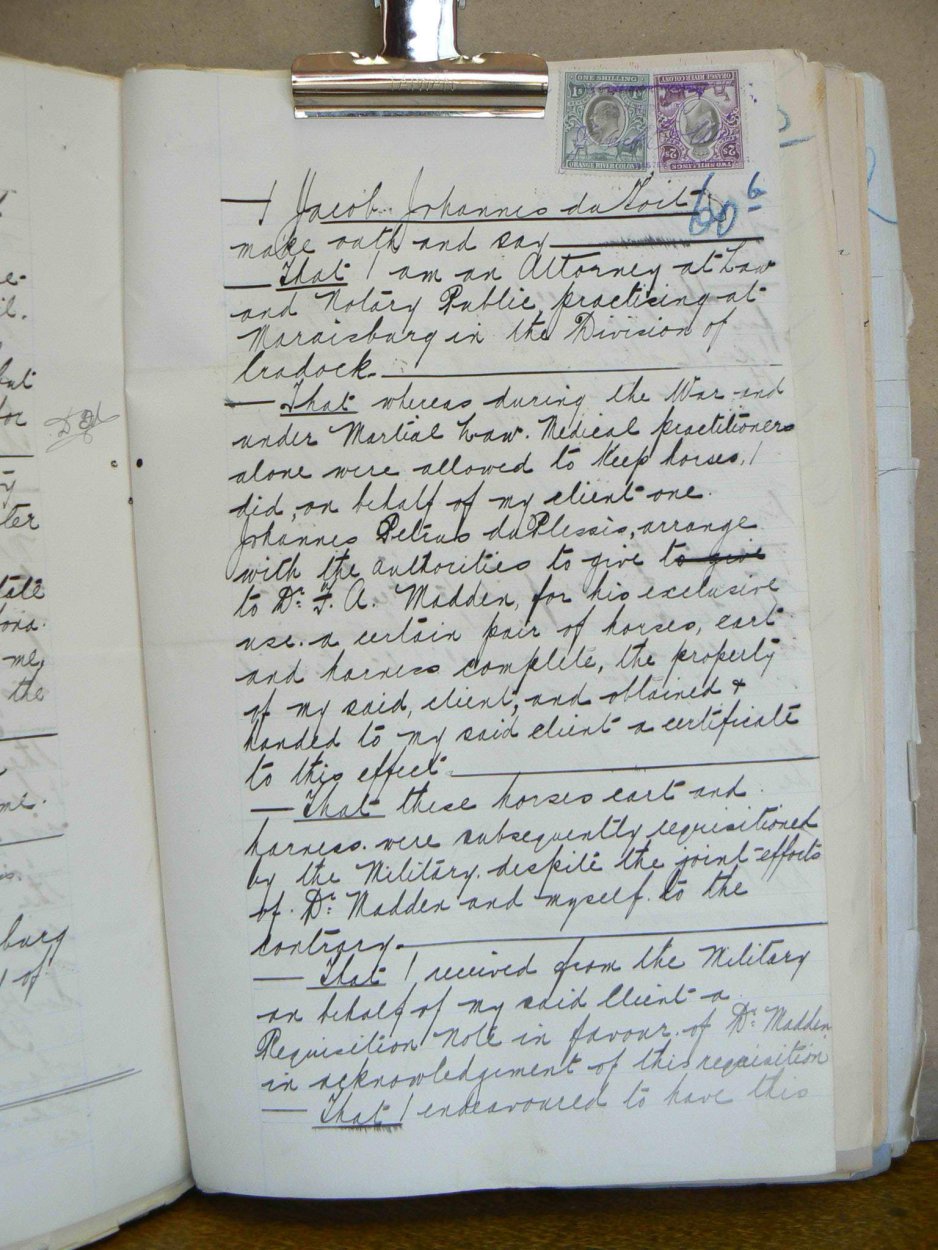 ONE SHILLING
ORANGE RIVER COLONY
ORANGE RIVER COLONY
TWO SHILLINGS
2s 2s
6
I Jacob Johannes du Toit
make oath and say
That I am an Attorney at Law
and Notary Public practising at
Maraisburg in the Division of
Cradock.
That whereas during the War and
under Martial Law. Medical practitioners
alone were allowed to keep horses, I
did, on behalf of my client one
Johannes Petrus du Plessis, arrange
with the authorities to give to give
to Dr. F. A. Madden, for his exclusive
use. a certain pair of horses, cart
and harness complete, the property
of my said, client, and obtained &
handed to my said client a certificate
to this effect.
That these horses cart and
harness. were subsequently requisitioned
by the Military. despite the joint efforts
of Dr. Madden and myself. to the
contrary.
That I received from the Military
on behalf of my said Client a
Requisition Note in favour of Dr. Madden
in acknowledgement of this requisition
That I endeavoured to have this
il.
but
for
ter
me,
the
me.
burg
of